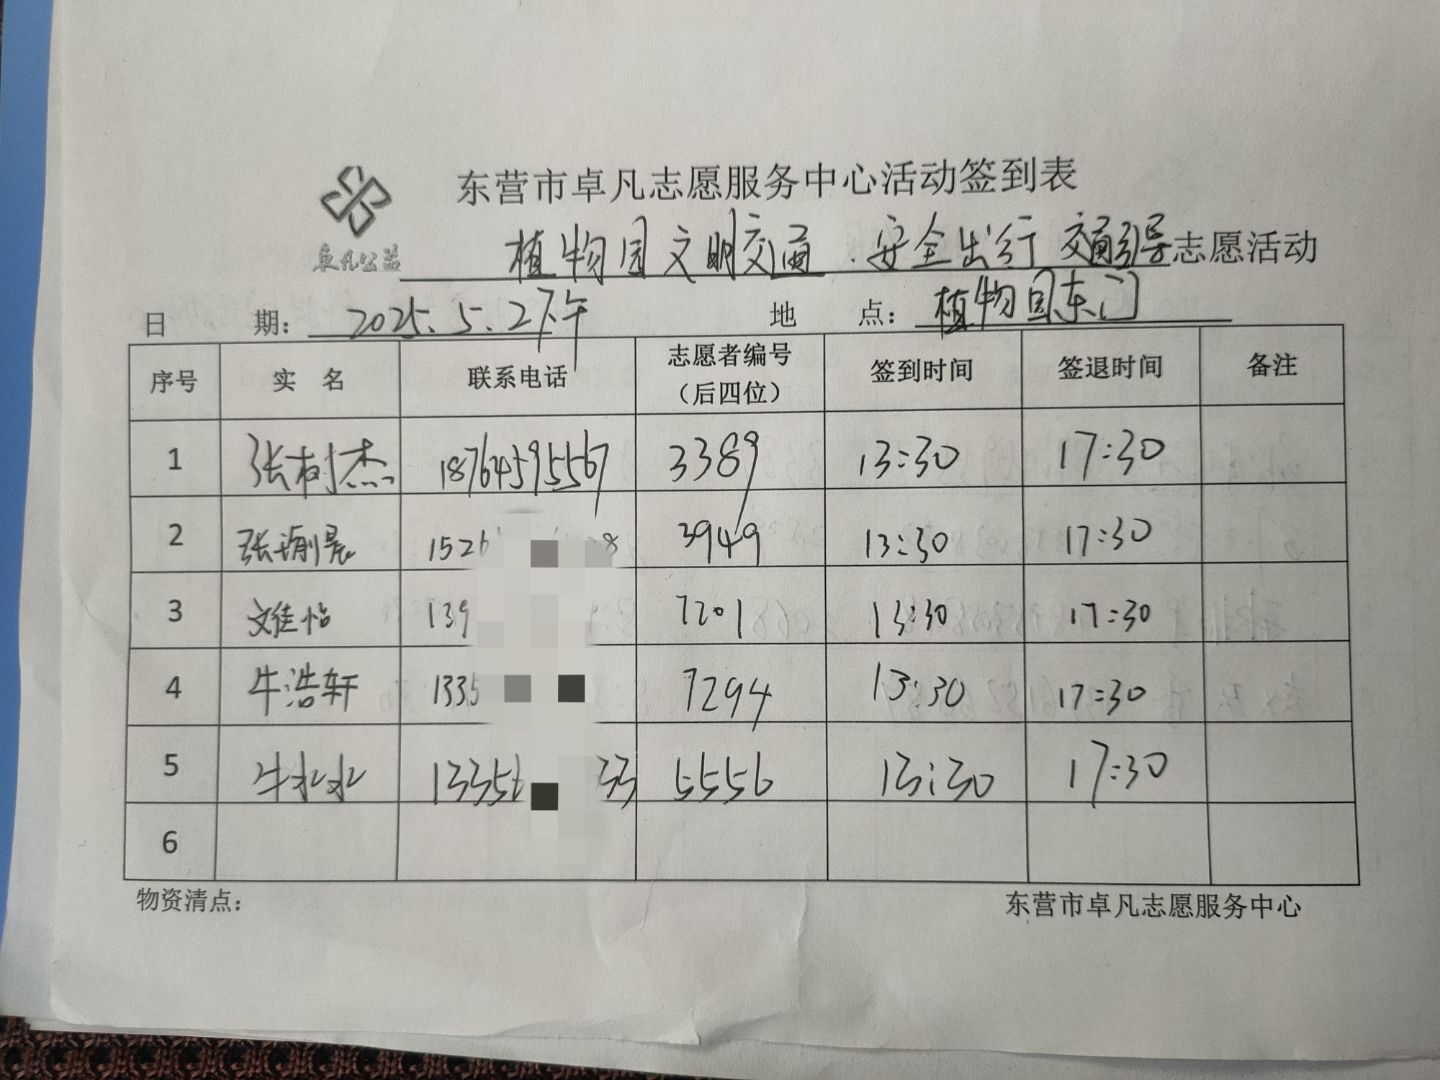 东营市卓凡志愿服务中心活动签到表
卓凡公益
植物园文明交通.安全出行交通引导志愿活动
日 期: 2025.5.2下午 地 点: 植物园东门
序号 实 名 联系电话 志愿者编号（后四位） 签到时间 签退时间 备注
1 张树杰 18764595567 3389 13:30 17:30
2 张 晨 1526 8 3949 13:30 17:30
3 文佳怡 139 7201 13:30 17:30
4 牛浩轩 1335 7294 13:30 17:30
5 牛水水 1335 33 5556 13:30 17:30
6
物资清点: 东营市卓凡志愿服务中心